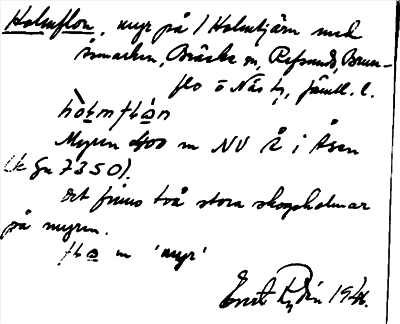 Holmflon, myr på / Holmtjärn med
simarken, Bräcke sn, Refsunds, Brun-
flo o Näs tg, Jämtl. l.
hòłmfłon
Myren 400 m NV Å i Åsen
(k Gn 7350).
Det finns två stora skogsholmar
på myren.
fłọ m 'myr'
Erist Lydén 1946.